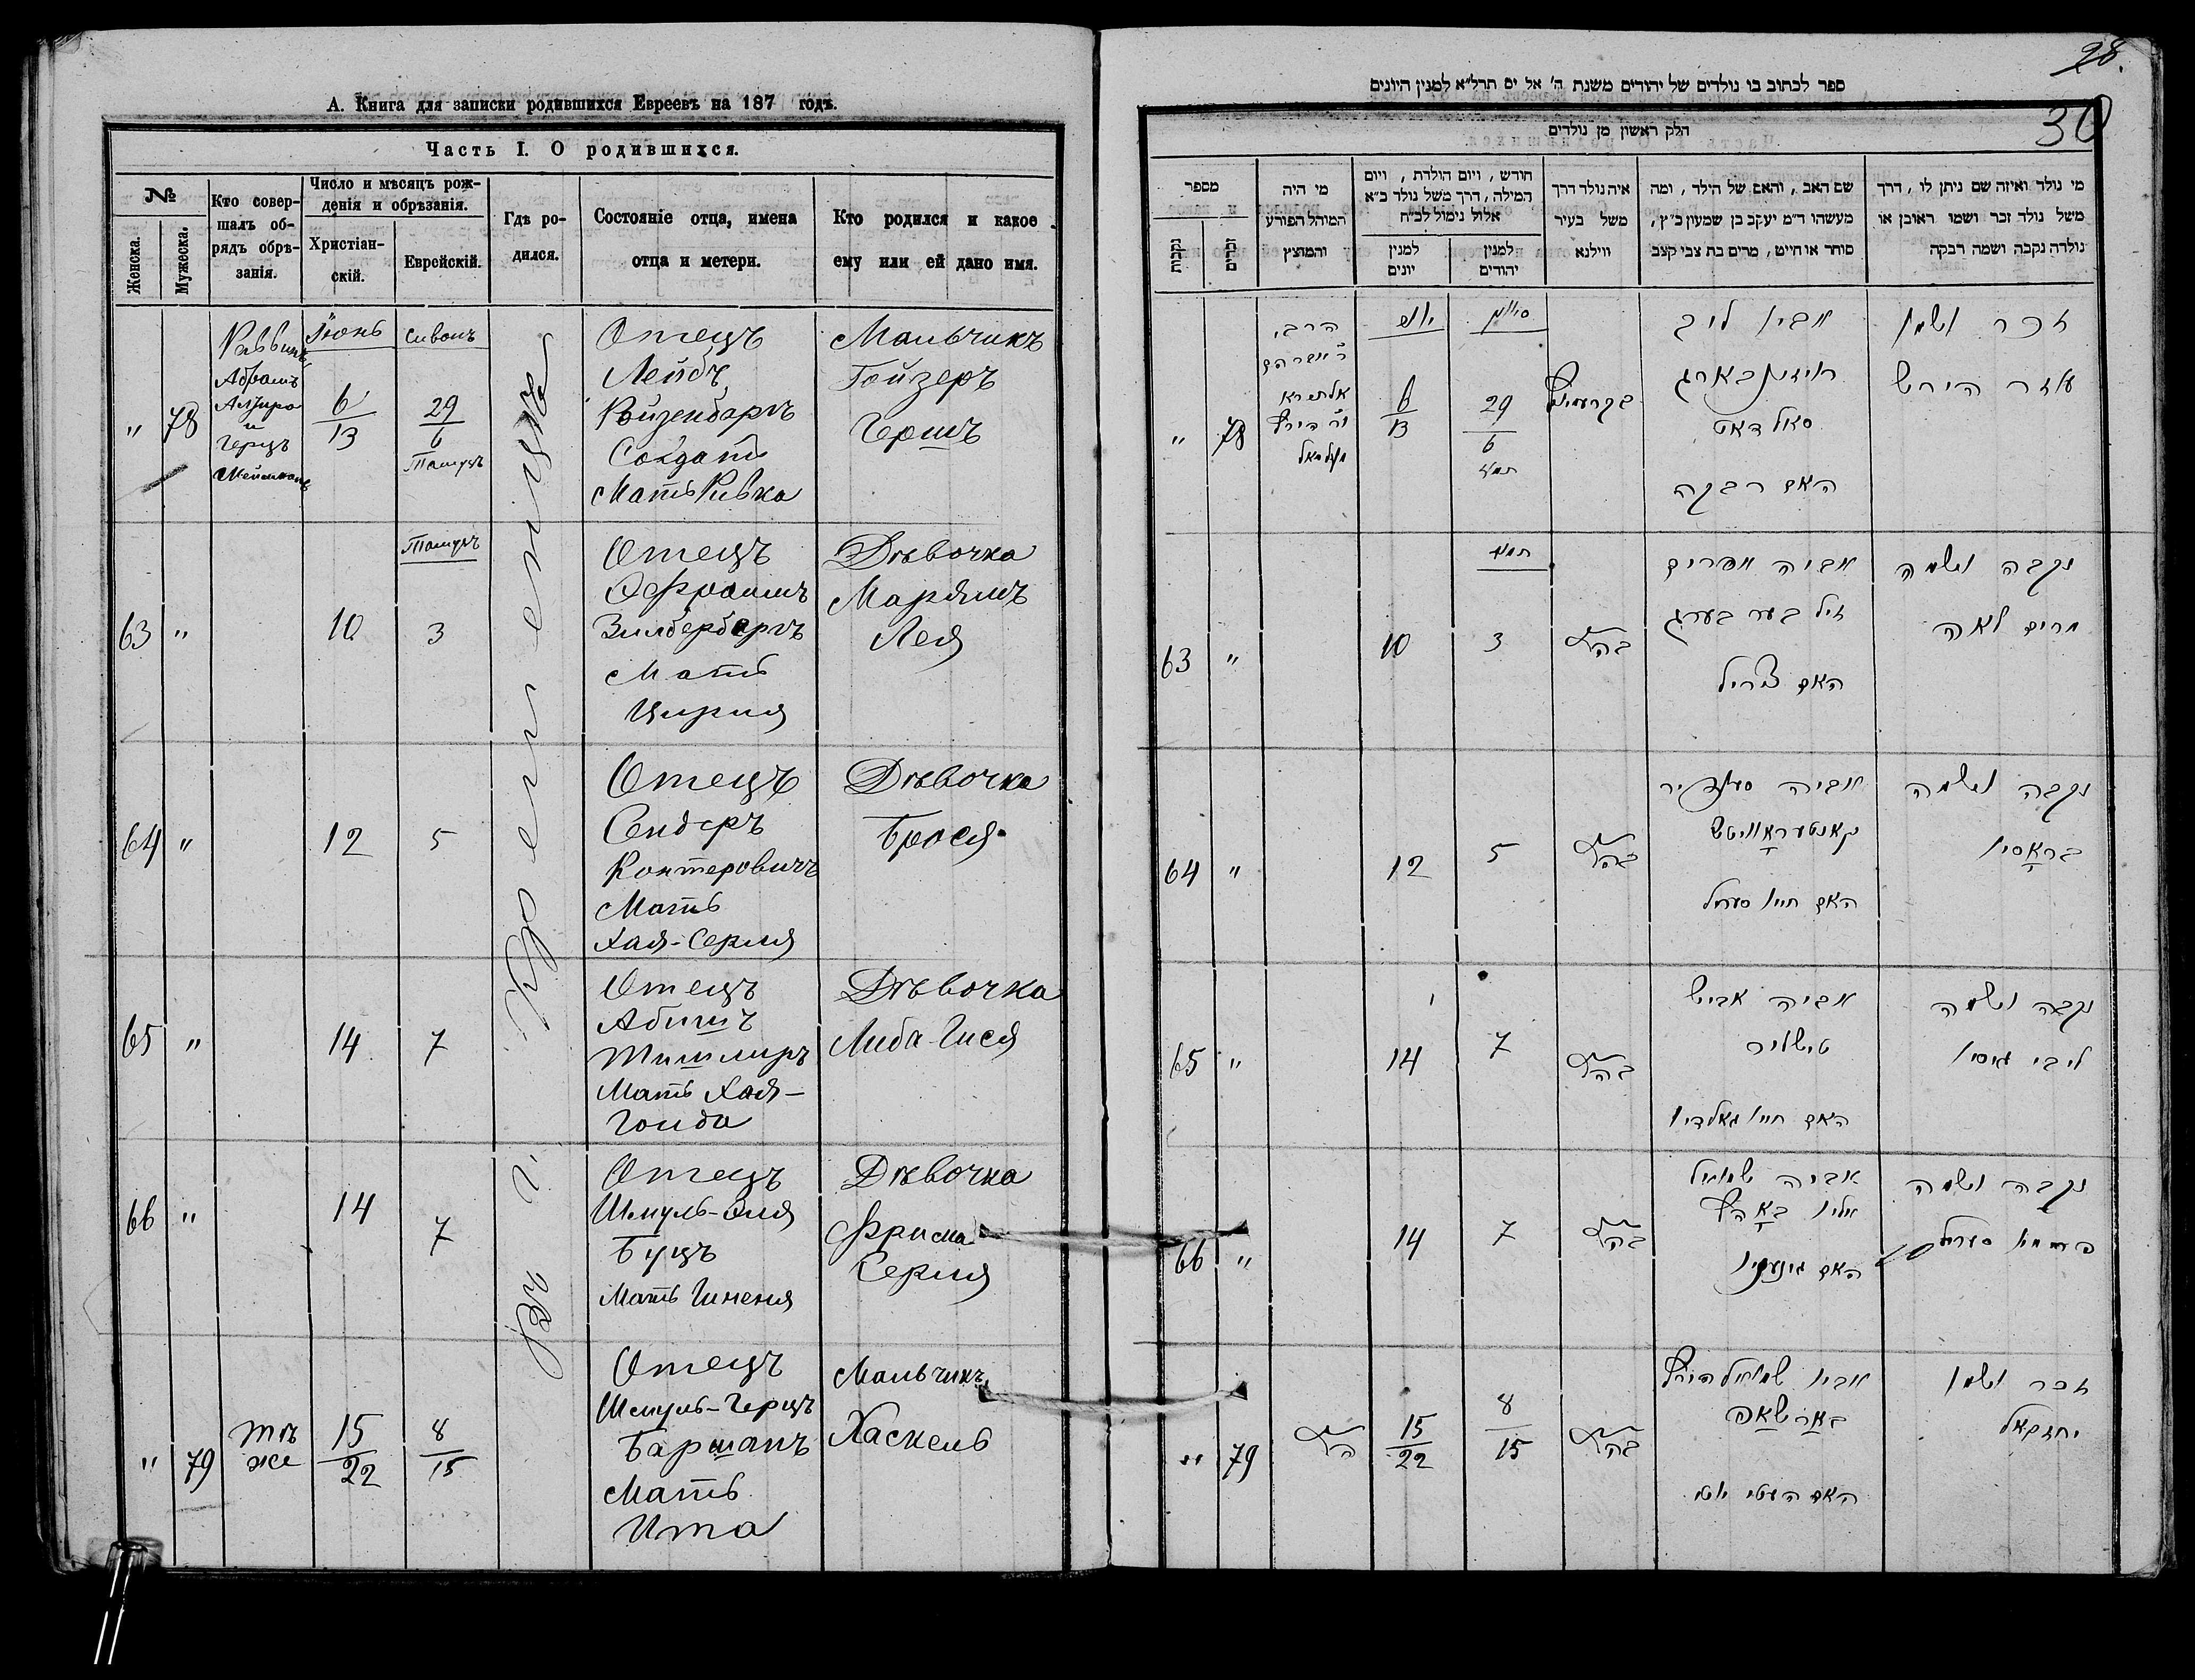 А. Книга для записки родившихся Евреевъ на 187 годъ.
Часть I. О родившихся.
№
Женска.
Мужеска.
Кто совер-
шалъ об-
рядъ обрѣ-
занія.
Число и мѣсяцъ рож-
денія и обрѣзанія.
Христіан-
скій.
Еврейскій.
Гдѣ ро-
дился.
Состояніе отца, имена
отца и метери.
Кто родился и какое
ему или ей дано имя.
Въ г. Кременецѣ
" 78
Раввинъ
Абрамъ
и
Герцъ
Іюнь
6
13
Сиванъ
29
6
Тамузъ
Отецъ
Лейбъ
Ройзенбаргъ
Солдатъ
Мать Ривка
Мальчикъ
Гойзеръ
Гершъ
63 "
10
Тамузъ
3
Отецъ
Эфроимъ
Зильбербергъ
Мать
Цирля
Дѣвочка
Марямъ
Лея
64 "
12
5
Отецъ
Сендеръ
Контеровичъ
Мать
Хая-Серля
Дѣвочка
Брося
65 "
14
7
Отецъ
Абишъ
Тишлиръ
Мать Хая-
Голда
Дѣвочка
Либа-Гися
66 "
14
7
Отецъ
Шмуль-Эля
Буцъ
Мать Гиненя
Дѣвочка
Фрима
Серля
" 79
Тѣ
же
15
22
8
15
Отецъ
Шмуль-Герцъ
Баршапъ
Мать
Ита
Мальчикъ
Хаскель
28.
30
ספר לכתוב בו נולדים של יהודים משנת ה' אל ים תרל״א למנין היונים
חלק ראשון מן נולדים
מספר
נקבות
זכרים
מי היה
המוהל הפורע
והמוצץ
חודש , ויום הולדת , ויום
המילה , דרך משל נולד כ״א
אלול נימול לכ״ח
למנין
יונים
למנין
יהודים
איה נולד דרך
משל בעיר
ווילנא
שם האב , והאם של הילד , ומה
מעשהו ד״מ יעקב בן שמעון כ״ץ ,
סוחר או חייט , מרים בת צבי קצב
מי נולד ואיזה שם ניתן לו , דרך
משל נולד זכר ושמו ראובן או
נולדה נקבה ושמה רבקה
" 78
הרב
6
13
סיון
29
6
תמוז
אביו ליב
רויזנבארג
סאלדאט
האם רבקה
זכר ושמו
עוזר הירש
63 "
10
תמוז
3
אביה אפרים
זילבערבערג
האם צירל
נקבה ושמה
מרים לאה
64 "
12
5
אביה סענדיר
קאנטעראוויטש
האם חיי' סערל
נקבה ושמה
בראסי'
65 "
14
7
אביה אביש
טישליר
האם חיי' גאלדי'
נקבה ושמה
ליבי גיסי'
66 "
14
7
אביה שמואל
האם
נקבה ושמה
" 79
15
22
8
15
אביו שמואל הירץ
זכר ושמו
יחזקאל